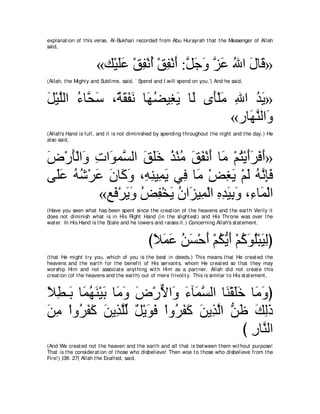 explanation of this verse, Al-Bukhari recorded from Abu Hurayrah that the Messenger of Allah
said,
«قَالَ اللهُ عَزَّ وَجَلَّ: أَنْفِقْ أُنْفِقْ عَلَيْك»
(Allah, the Mighty and Sublime, said, `Spend and I will spend on you.') And he said,
«يَدُ اللهِ مَلْأَى لَا يَغِيضُهَا نَفَقَةٌ، سَحَّاءُ اللَّيْلَ
وَالنَّهَار»
(Allah's Hand is full, and it is not diminished by spending throughout the night and the day.) He
also said,
«أَرَأَيْتُمْ مَا أَنْفَقَ مُنْذُ خَلَقَ السَّموَاتِ وَالْأَرْضَ
فَإِنَّهُ لَمْ يَغِضْ مَا فِي يَمِينِهِ، وَكَانَ عَرْشُهُ عَلَى
الْمَاءِ، وَبِيَدِهِ الْمِيزَانُ يَخْفِضُ وَيَرْفَع»
(Have you seen what has been spent since the creation of the heavens and the earth Verily it
does not diminish what is in His Right Hand (in the slightest) and His Throne was over the
water. In His Hand is the Scale and he lowers and raises it.) Concerning Allah's statement,
(لِيَبْلُوَكُمْ أَيُّكُمْ أَحْسَنُ عَمَلاً)
((that He might try you, which of you is the best in deeds.) This means that He created the
heavens and the earth for the benefit of His servants, whom He created so that they may
worship Him and not associate anything with Him as a partner. Allah did not create this
creation (of the heavens and the earth) out of mere frivolity. This is similar to His statement,
(وَمَا خَلَقْنَا السَّمَآءَ وَالاٌّرْضَ وَمَا بَيْنَهُمَا بَـطِلاً
ذَلِكَ ظَنُّ الَّذِينَ كَفَرُواْ فَوَيْلٌ لِّلَّذِينَ كَفَرُواْ مِنَ
النَّارِ )
(And We created not the heaven and the earth and all that is between them without purpose!
That is the consideration of those who disbelieve! Then woe to those who disbelieve from the
Fire!) )38: 27( Allah the Exalted, said,